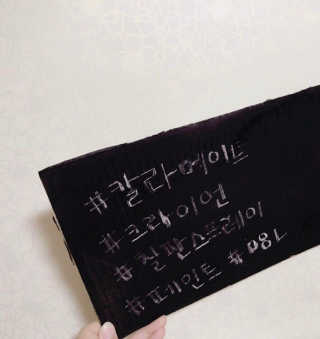 #칼라메이트
#크레이언
#칠판스프레이
#페인트 #081